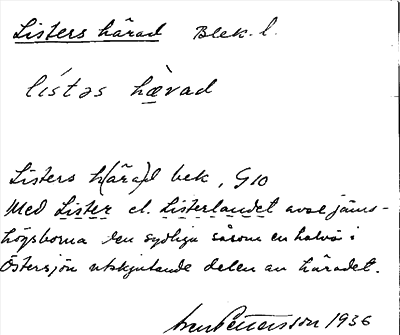 Listers härad Blek. l.
lístəs hæ̀rad
Listers h(ära)d bek., G10
Med Lister el. Listerlandet avse jäms-
högsborna den sydliga såsom en halvö i
Östersjön utskjutande delen av häradet.
Pettersson 1936